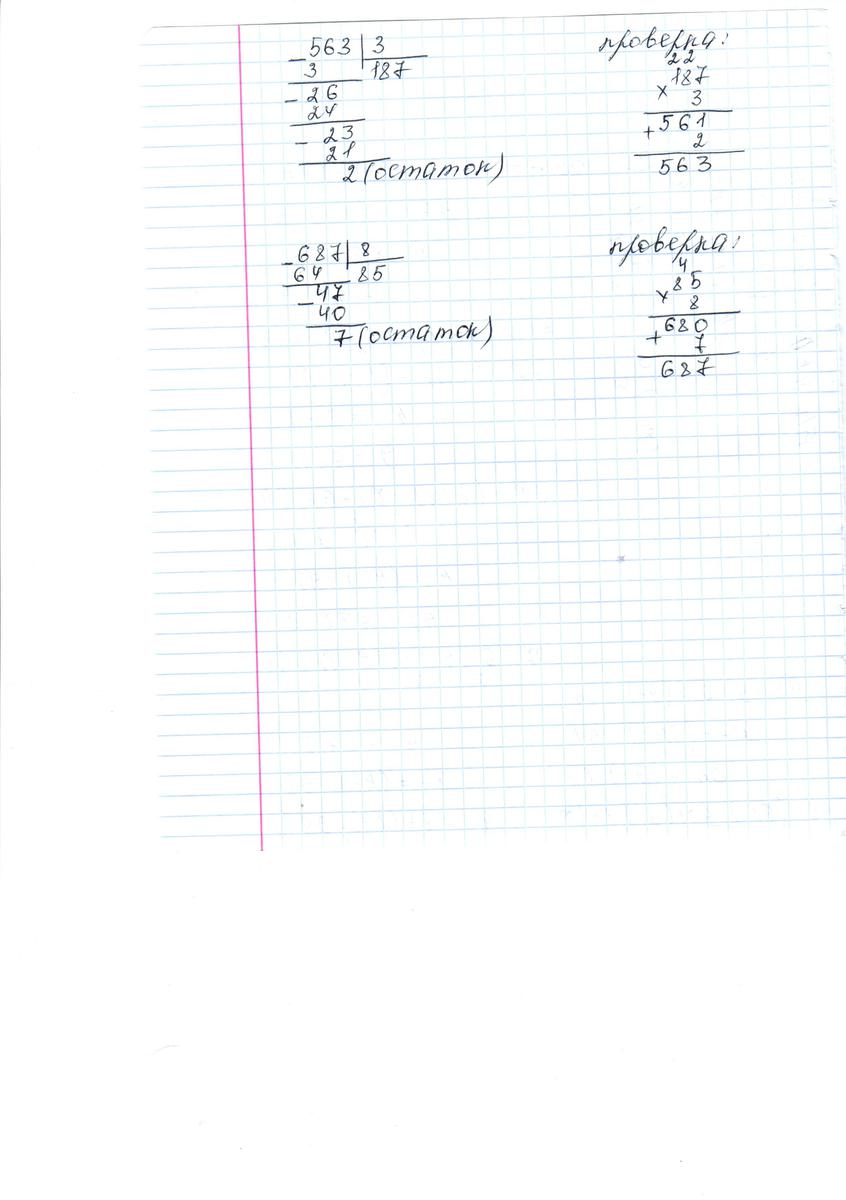 563 | 3
3 187
- 26
24
- 23
21
2 (остаток)
проверка:
22
187
× 3
561
+ 2
563
- 687 | 8
64 85
- 47
40
7 (остаток)
проверка:
4
85
× 8
680
+ 7
687